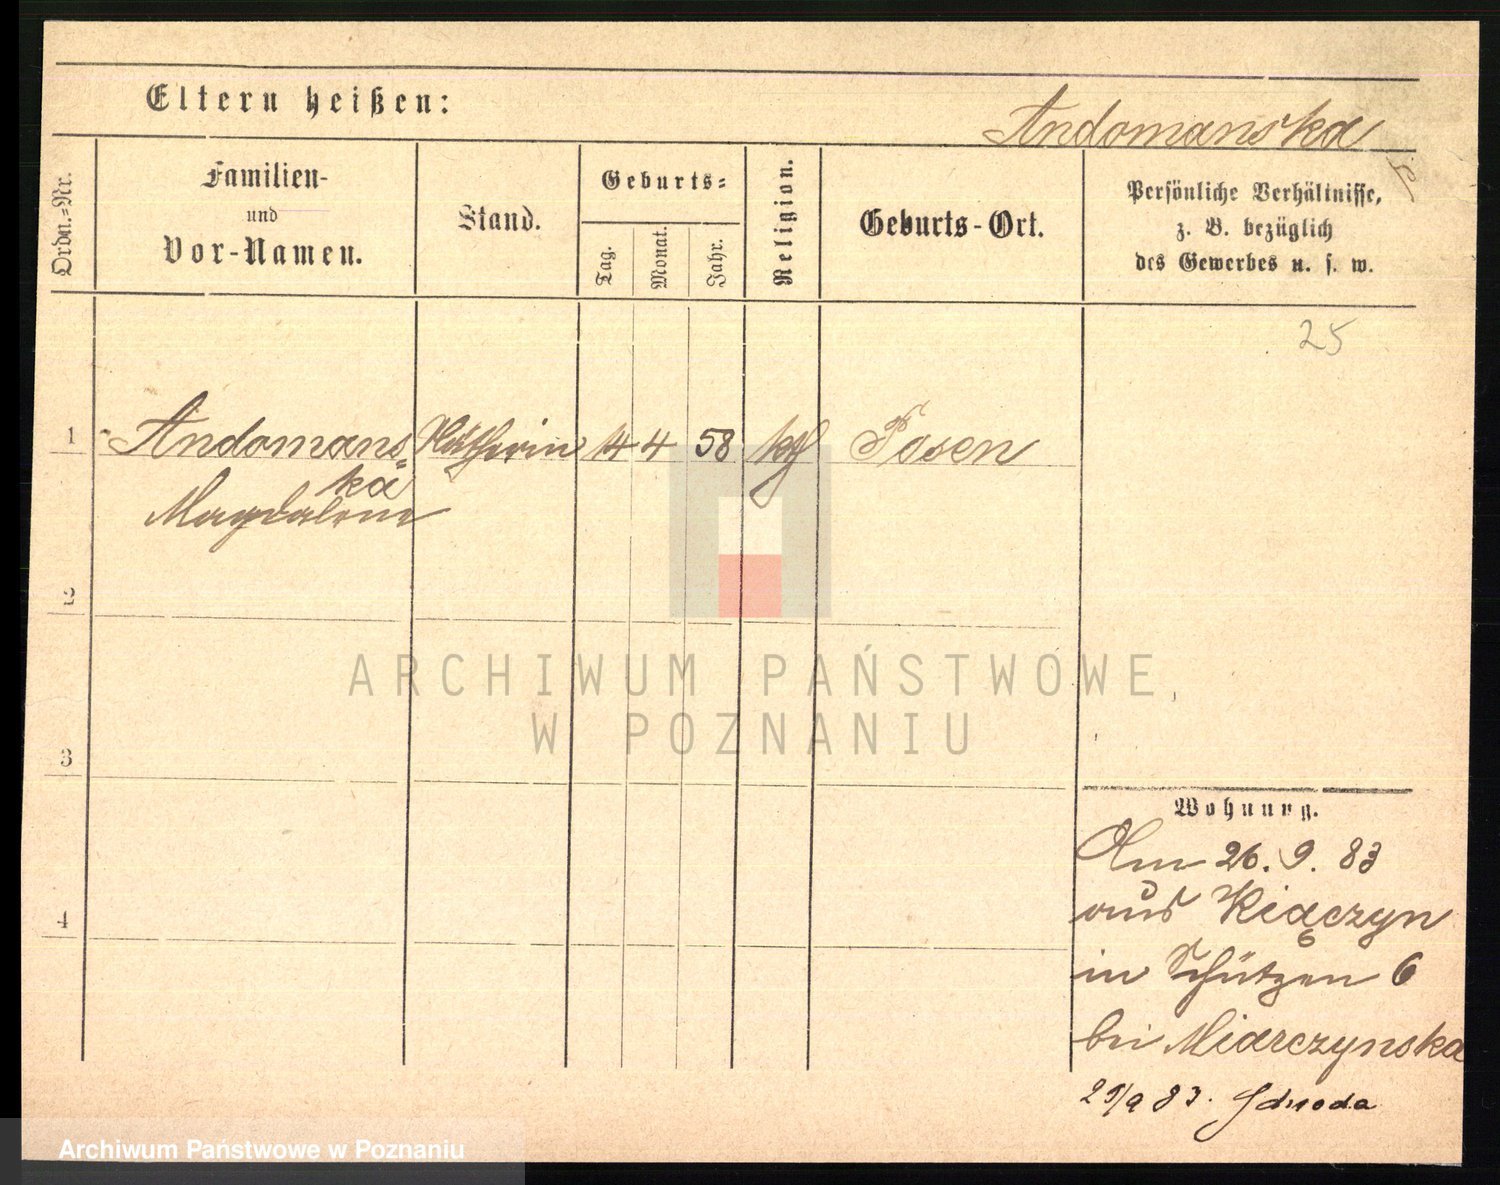 Eltern heißen:
Andomanska
Ordn.=Nr.
Familien-
und
Vor-Namen.
Stand.
Geburts=
Tag.
Monat.
Jahr.
Religion.
Geburts-Ort.
Persönliche Verhältnisse,
z. B. bezüglich
des Gewerbes u. s. w.
25
1 Andomans= 14 4 58 kth Posen
ka
Magdalene
2
3
4
Wohnung.
Am 26. 9. 83
aus Kiączyn
in Schützen 6
bei Miarczynska
29/9 83.
ARCHIWUM PAŃSTWOWE
W POZNANIU
Archiwum Państwowe w Poznaniu